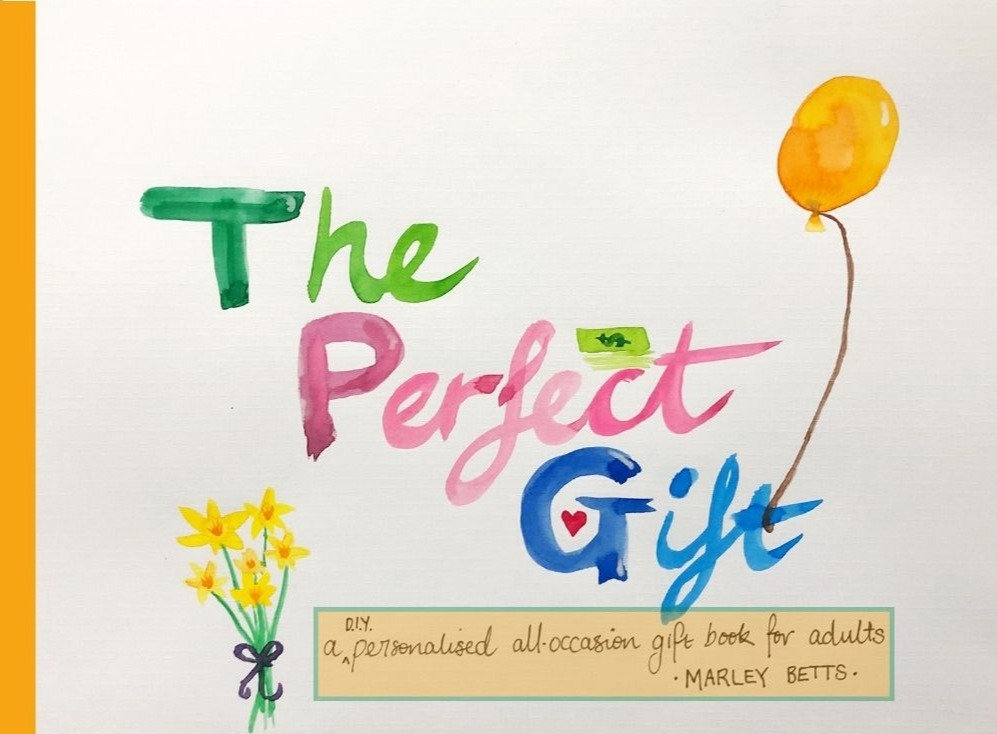 The
Perfect
$
Gift
D.I.Y.
a ‸ personalised all-occasion gift book for adults
· MARLEY BETTS ·